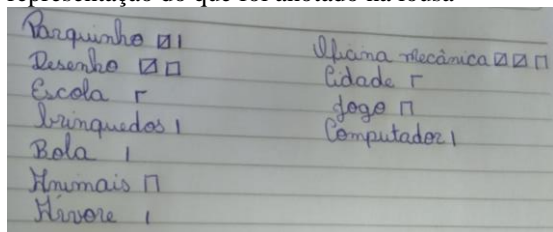 representação do que foi anotado na lousa
Parquinho
Desenho
Escola
brinquedos
Bola
Animais
Árvore
Oficina Mecânica
Cidade
Jogo
Computador